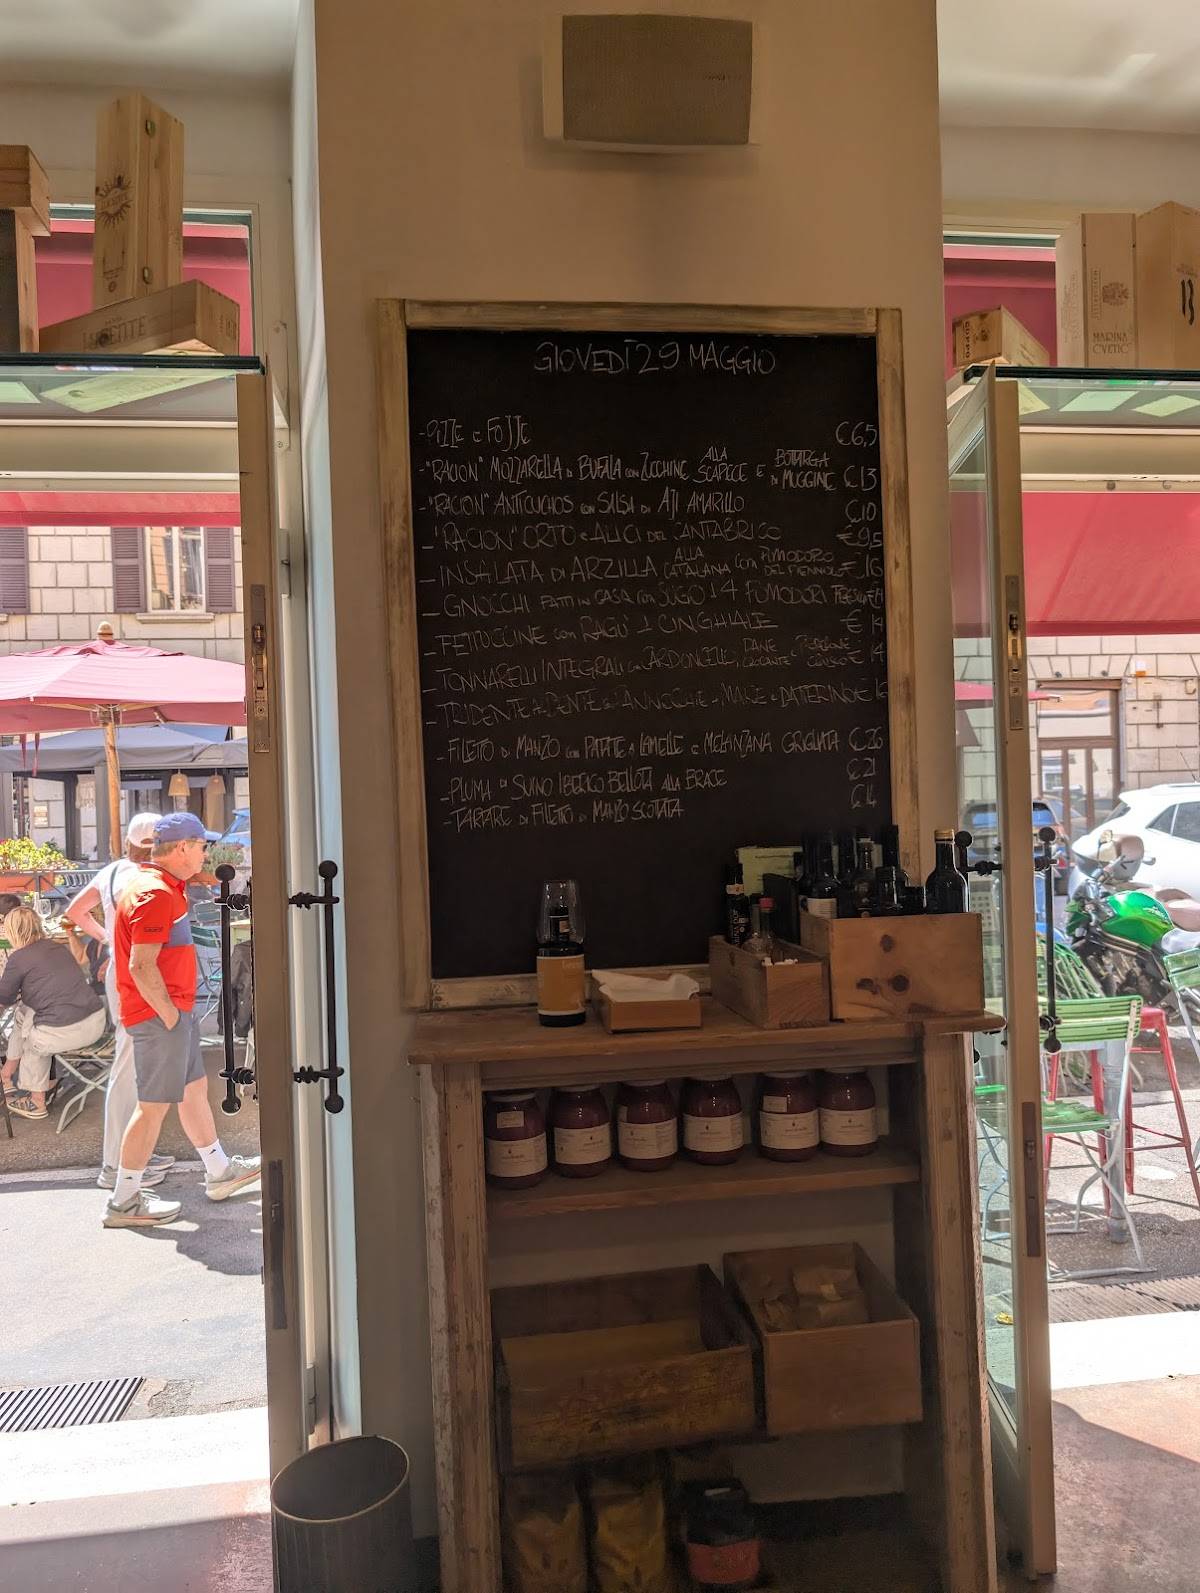 LUCENTE
MARINA
CVETIĆ
GIOVEDÌ 29 MAGGIO
-PIZZE e FOJJE €6,5
-"RACION" MOZZARELLA DI BUFALA con ZUCCHINE ALLA SCAPECE E BOTTARGA DI MUGGINE €13
-"RACION" ANTICUCHOS con SALSA DI AJI AMARILLO €10
-"RACION" ORTO e ALICI DEL CANTABRICO €9,5
-INSALATA DI ARZILLA ALLA CATALANA CON POMODORO DEL PIENNOLO €16
-GNOCCHI FATTI IN CASA con SUGO AI 4 POMODORI
-FETTUCCINE con RAGÙ DI CINGHIALE € 14
-TONNARELLI INTEGRALI con CARDONCELLI, PANE CROCCANTE e PEPERONE CRUSCO € 14
-TRIDENTE AL DENTE CANNOCCHIE DATTERINO
-FILETTO DI MANZO con PATATE A LAMELLE e MELANZANA GRIGLIATA €26
-PLUMA DI SUINO IBERICO BELLOTA ALLA BRACE €21
-TARTARE DI FILETTO DI MANZO SCOTTATA €14